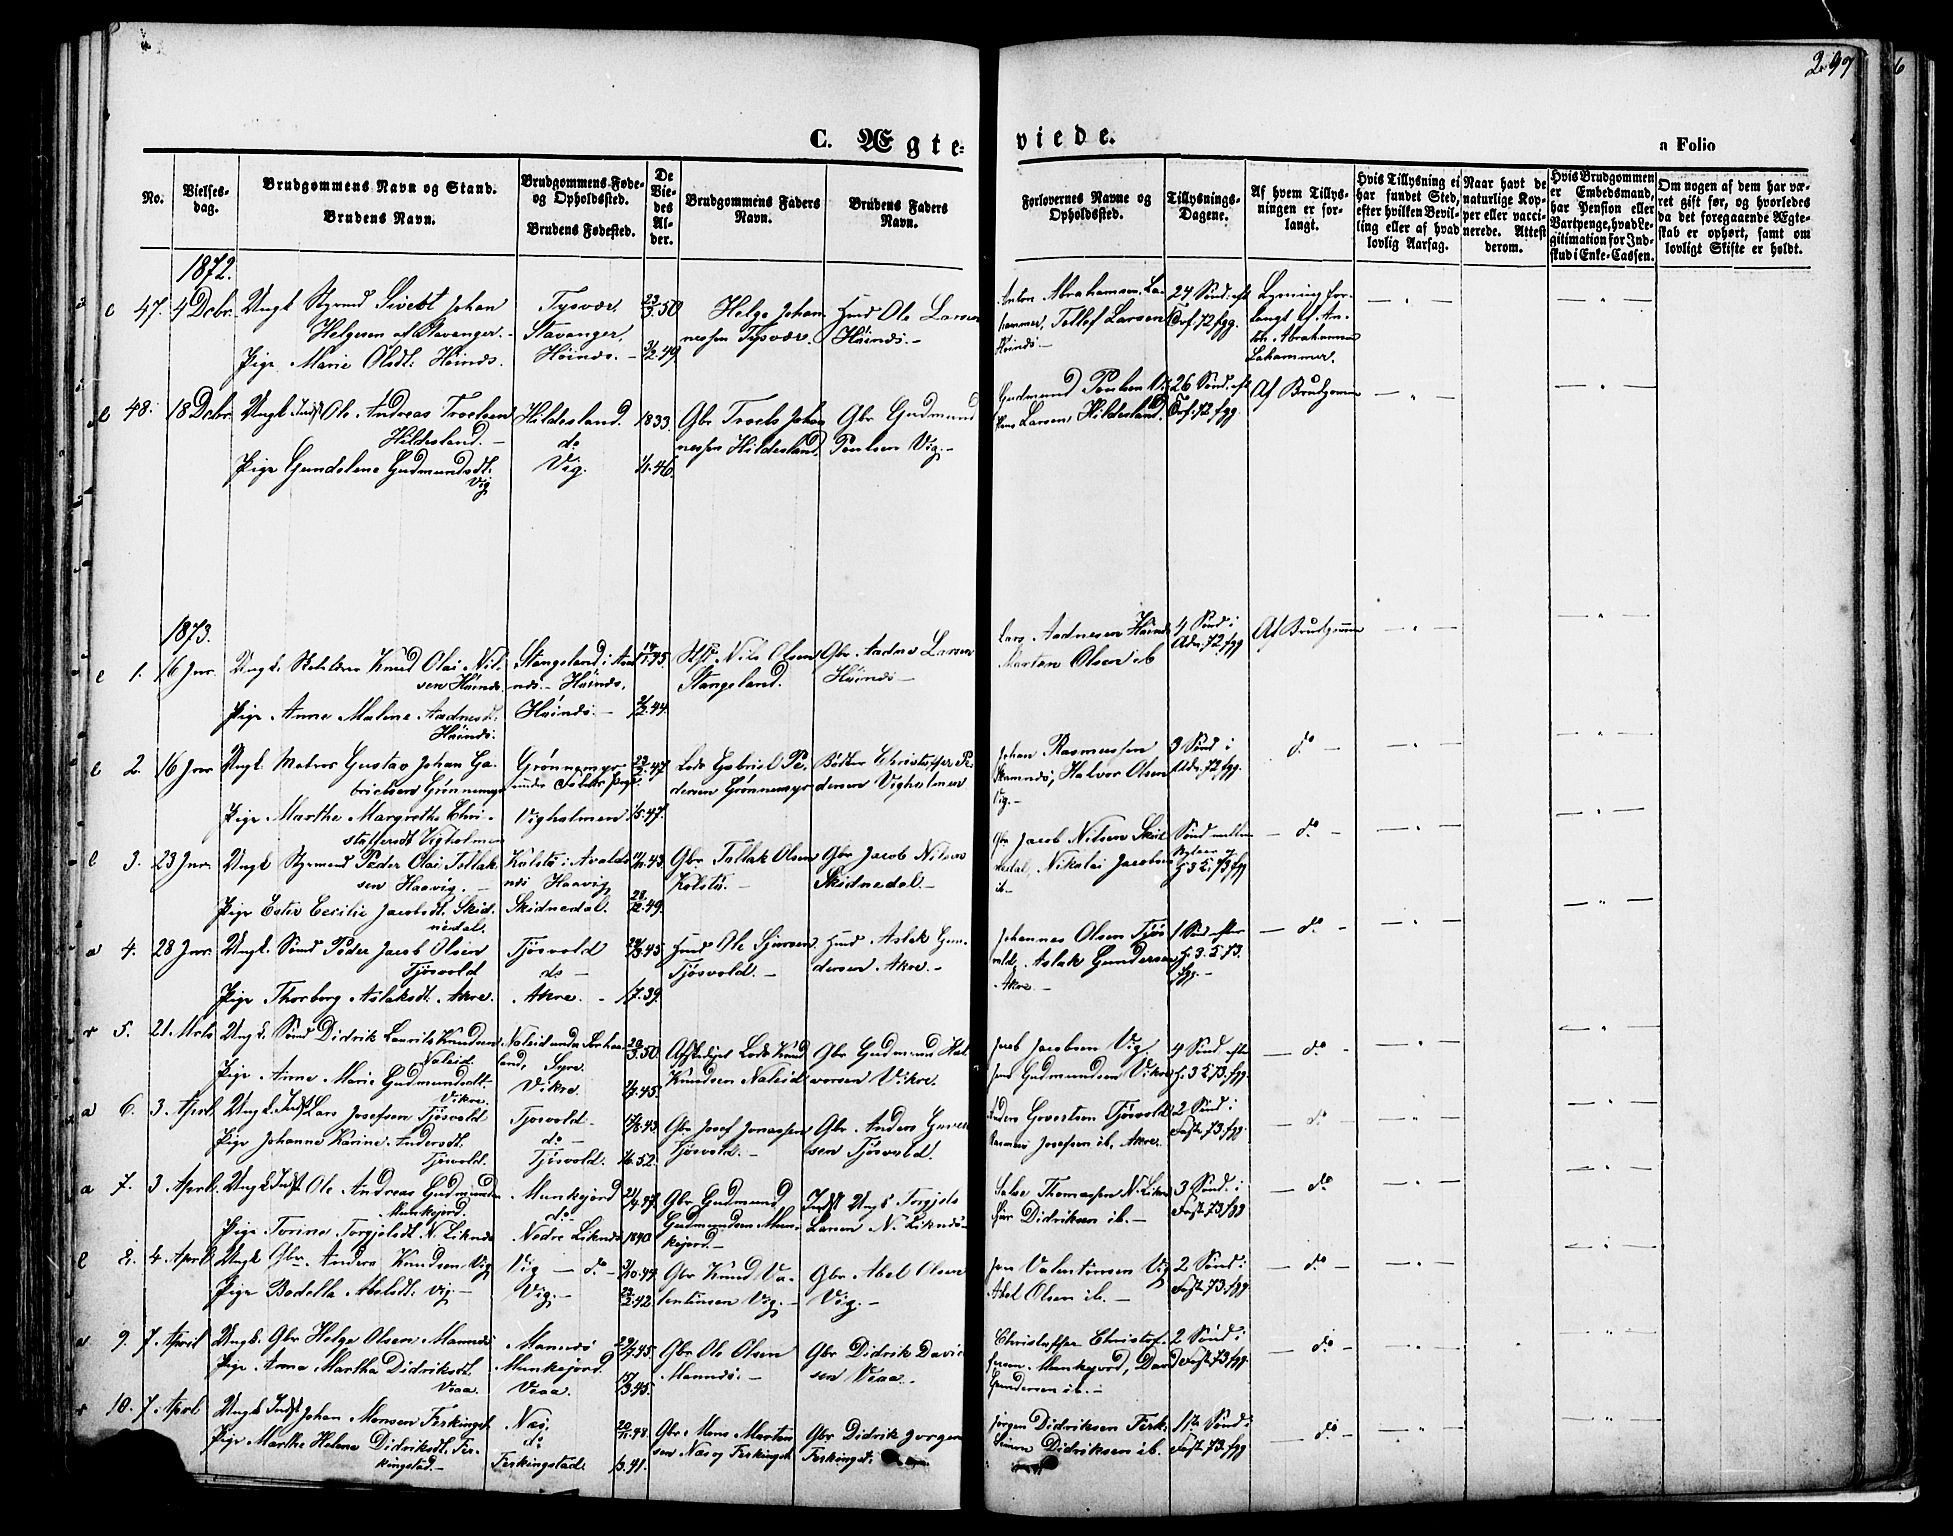 297
6
C. Ægte- viede.
a Folio
No.
Vielses-
dag.
Brudgommens Navn og Stand.
Brudens Navn.
Brudgommens Føde-
og Opholdssted.
Brudens Fødested.
De
Vie-
des
Al-
der.
Brudgommens Faders
Navn.
Brudens Faders
Navn.
Forlovernes Navne og
Opholdssted.
Tillysnings-
Dagene.
Af hvem Tillys-
ningen er for-
langt.
Hvis Tillysning ei
har fundet Sted,
efter hvilken Bevil-
ling eller af hvad
lovlig Aarsag.
Naar havt de
naturlige Kop-
per eller vacci-
nerede. Attest
derom.
Hvis Brudgommen
er Embedsmand,
har Pension eller
Vartpenge, hvad Le-
gitimation for Ind-
skud i Enke-Cassen.
Om nogen af dem har væ-
ret gift før, og hvorledes
da det foregaaende Ægte-
skab er ophørt, samt om
lovligt Skifte er holdt.
1872.
47. 4 Decbr. Ungk. Styrmd Sivert Johan
Helgesen af Stavanger.
Pige Marie Olsdt. Höinds.
Tysvær.
Stavanger.
Höinds.
23/3.50
3/2.49
Helge Johan-
nessen Tysvær.
Hmd Ole Larsen
Höinds.
Anton Abrahamsen La-
hammer, Tollef Larsen
Höinds
24 Sønd. eft.
Tref. 72 fgg.
Lysning for-
langt af An-
ton Abrahamsen
Lahammer.
48. 18 Decbr. Ungk. Indst Ole Andreas Troelsen
Hildesland.
Pige Gundelene Gudmundsdt.
Vig
Hildesland.
do
Vig.
1833.
1/1.46.
Gbr Troels Johan-
nessen Hildesland.
Gbr Gudmund
Poulsen Vig.
Gudmund Poulsen Vig
Larsen, Hildesland.
26 Sønd. eft
Tref. 72 fgg.
Af Brudgomm
1873.
1. 16 Jnr. Ungk. Knud Olai Nil-
sen Höinds.
Pige Anne Maline Aadnesdt.
Höinds.
Stangeland i Ava
nds. Höinds.
Höinds.
Nils Olsen
Stangeland.
Gbr Aadne Larsen
Höinds
Lars Aadnesen Höinds
Morten Olsen ib
4 Sønd i
Adv. 72. fgg
Af Brudgomm
2. 16 Jnr Ungk. Matros Gustav Johan Ga-
brielsen Grønnemyr
Pige Marthe Margrethe Chri-
stoffersdt Vigholmen
Grønnemyr
Vigholmen
1/5.47.
Lods Gabriel Pe-
dersen Grønnemyr
Bödker Christoffer Pe-
dersen Vigholmen
Johan Rasmussen
Halvor Olsen
Vig.
3 Sønd i
Adv. 72 fgg.
do
3. 23 Jnr. Ungk Styrmand Peder Olai Tollak-
sen Haavig.
Pige Ester Cecilie Jacobsdt. Skid-
nedal.
Kolstö i Avalds
nds Haavig
Skidnedal.
28/12.49.
Gbr Tollak Olsen
Kolstö.
Gbr Jacob Nilsen
Skidnedal.
Gbr Jacob Nilsen Skid-
nedal, Nikolai Jacobsen
ib
Sønd mellem
Nytaar og
H. 3 K. 73 fgg
do
4. 28 Jnr. Ungk. Sömd Peder Jacob Olsen
Tjösvold
Pige Thorborg Aslaksdt. Akre.
Tjösvold
do
Akre.
1/7.39.
Hmd Ole Sjursen
Tjösvold.
Hmd Aslak Gun-
dersen Akre.
Johannes Olsen Tjös-
vold, Aslak Gundersen
Akre
1 Sönd efter
H. 3. K. 73.
fgg.
do
5. 21. Mrts Ungk. Sömd Didrik Laurits Knudsen
Naleid.
Pige Anne Marie Gudmundsdt
Vikre.
Vikre.
20/3.50.
Afskediget Lods Knud
Knudsen Naleid
Gbr Gudmund Hal-
vorsen Vikre.
Jacob Jacobsen Vig.
Gudmundsen Vikre
4 Sönd. efter
H. 3 K. 73. fgg.
do
6. 3. April Ungk. Indst Lars Josefsen Tjösvold
Pige Johanne Karine Andersdt.
Tjösvold.
Tjösvold
do
Tjösvold.
17/8.43
1/6.52.
Gbr Josef Jonassen
Tjösvold.
Gbr. Anders Govert-
sen Tjösvold.
Anders Govertsen Tjösvold
Rasmus Josefsen ib. Akre.
2 Sönd i
Fast. 73. fgg.
do
7. 3 April. Ungk Indst Ole Andreas Gudmundsen
Munkejord.
Pige Torine Torgjelsdt N. Liknds
Munkejord
do
Nedre Liknds
1840
Gbr Gudmund
Gudmundsen Mun-
kejord
Indst Ungk Torgjels
Larsen N. Liknds
Salve Thomassen N. Likn
Didriksen ib.
3 Sönd. i
Fast. 73 fgg
do
8. 4. April Ungk Gbr Anders Knudsen Vig
Pige Bodella Abelsdt. Vig.
Vig — do —
Vig.
3/10.49.
22/2.42.
Gbr Knud Va-
lentinsen Vig.
Gbr Abel Olsen
Vig.
Valentinsen Vig
Abel Olsen ib.
2 Sönd i
Fast. 73. fgg
do
9. 7. April Ungk. Gbr Helge Olsen Mannes
Pige Anna Martha Didriksdt.
Veaa.
Mannes
Munkejord
Veaa.
Gbr Ole Olsen
Mannes.
Gbr Didrik David-
sen Veaa.
Christoffer Christof-
fersen Munkejord, David
Gundersen ib.
2 Sönd i
Fast. 73 fgg.
do
10. 7. April Ungk Indst Johan Monsen Ferkingst
Pige Marthe Helene Didriksdt. Fer-
kingstad.
Næs
do
Ferkingstad.
20/11.48.
1/3.41.
Gbr Mons Morten-
sen Næs, Ferkingst
Gbr Didrik Jorgen
Ferkingst.
Jörgen Didriksen Ferk.
Simon Didriksen ib.
1ste Sönd i
Fast. 73. fgg
do